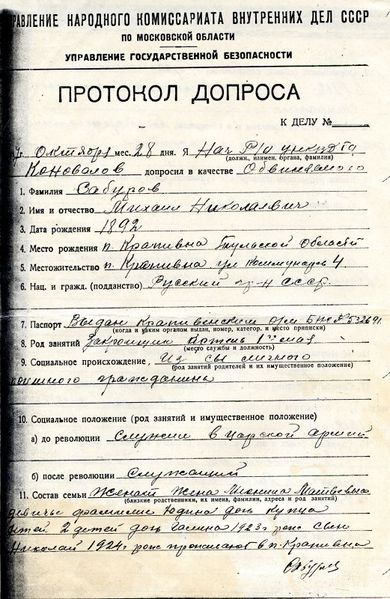 УПРАВЛЕНИЕ НАРОДНОГО КОМИССАРИАТА ВНУТРЕННИХ ДЕЛ СССР
ПО МОСКОВСКОЙ ОБЛАСТИ
УПРАВЛЕНИЕ ГОСУДАРСТВЕННОЙ БЕЗОПАСНОСТИ
ПРОТОКОЛ ДОПРОСА
К ДЕЛУ №
Октября мес. 28 дня. Я Нач
(должн., наимен. органа, фамилия)
Коновалов допросил в качестве Обвиняемого
1. Фамилия Сабуров
2. Имя и отчество Михаил Николаевич
3. Дата рождения 1892
4. Место рождения п. Крапивна Тульской Области
5. Местожительство п. Крапивна ул Коммунаров 4
6. Нац. и гражд. (подданство) Русский гр-н СССР.
7. Паспорт Выдан Крапивенским
(когда и каким органом выдан, номер, категор. и место приписки)
8. Род занятий Закройщик Артель 1е мая
(место службы и должность)
9. Социальное происхождение Из
(род занятий родителей и их имущественное положение)
гражданина
10. Социальное положение (род занятий и имущественное положение)
а) до революции Служил в царской армии
б) после революции Служащий
11. Состав семьи Женат Жена Матвеевна
(близкие родственники, их имена, фамилии, адреса и род занятий)
девичье фамилие Юдина доч купца
детей 2 детей доч Галина 1923 г рож сын
Николай 1924 г рож проживают в п. Крапивна
Сабуров